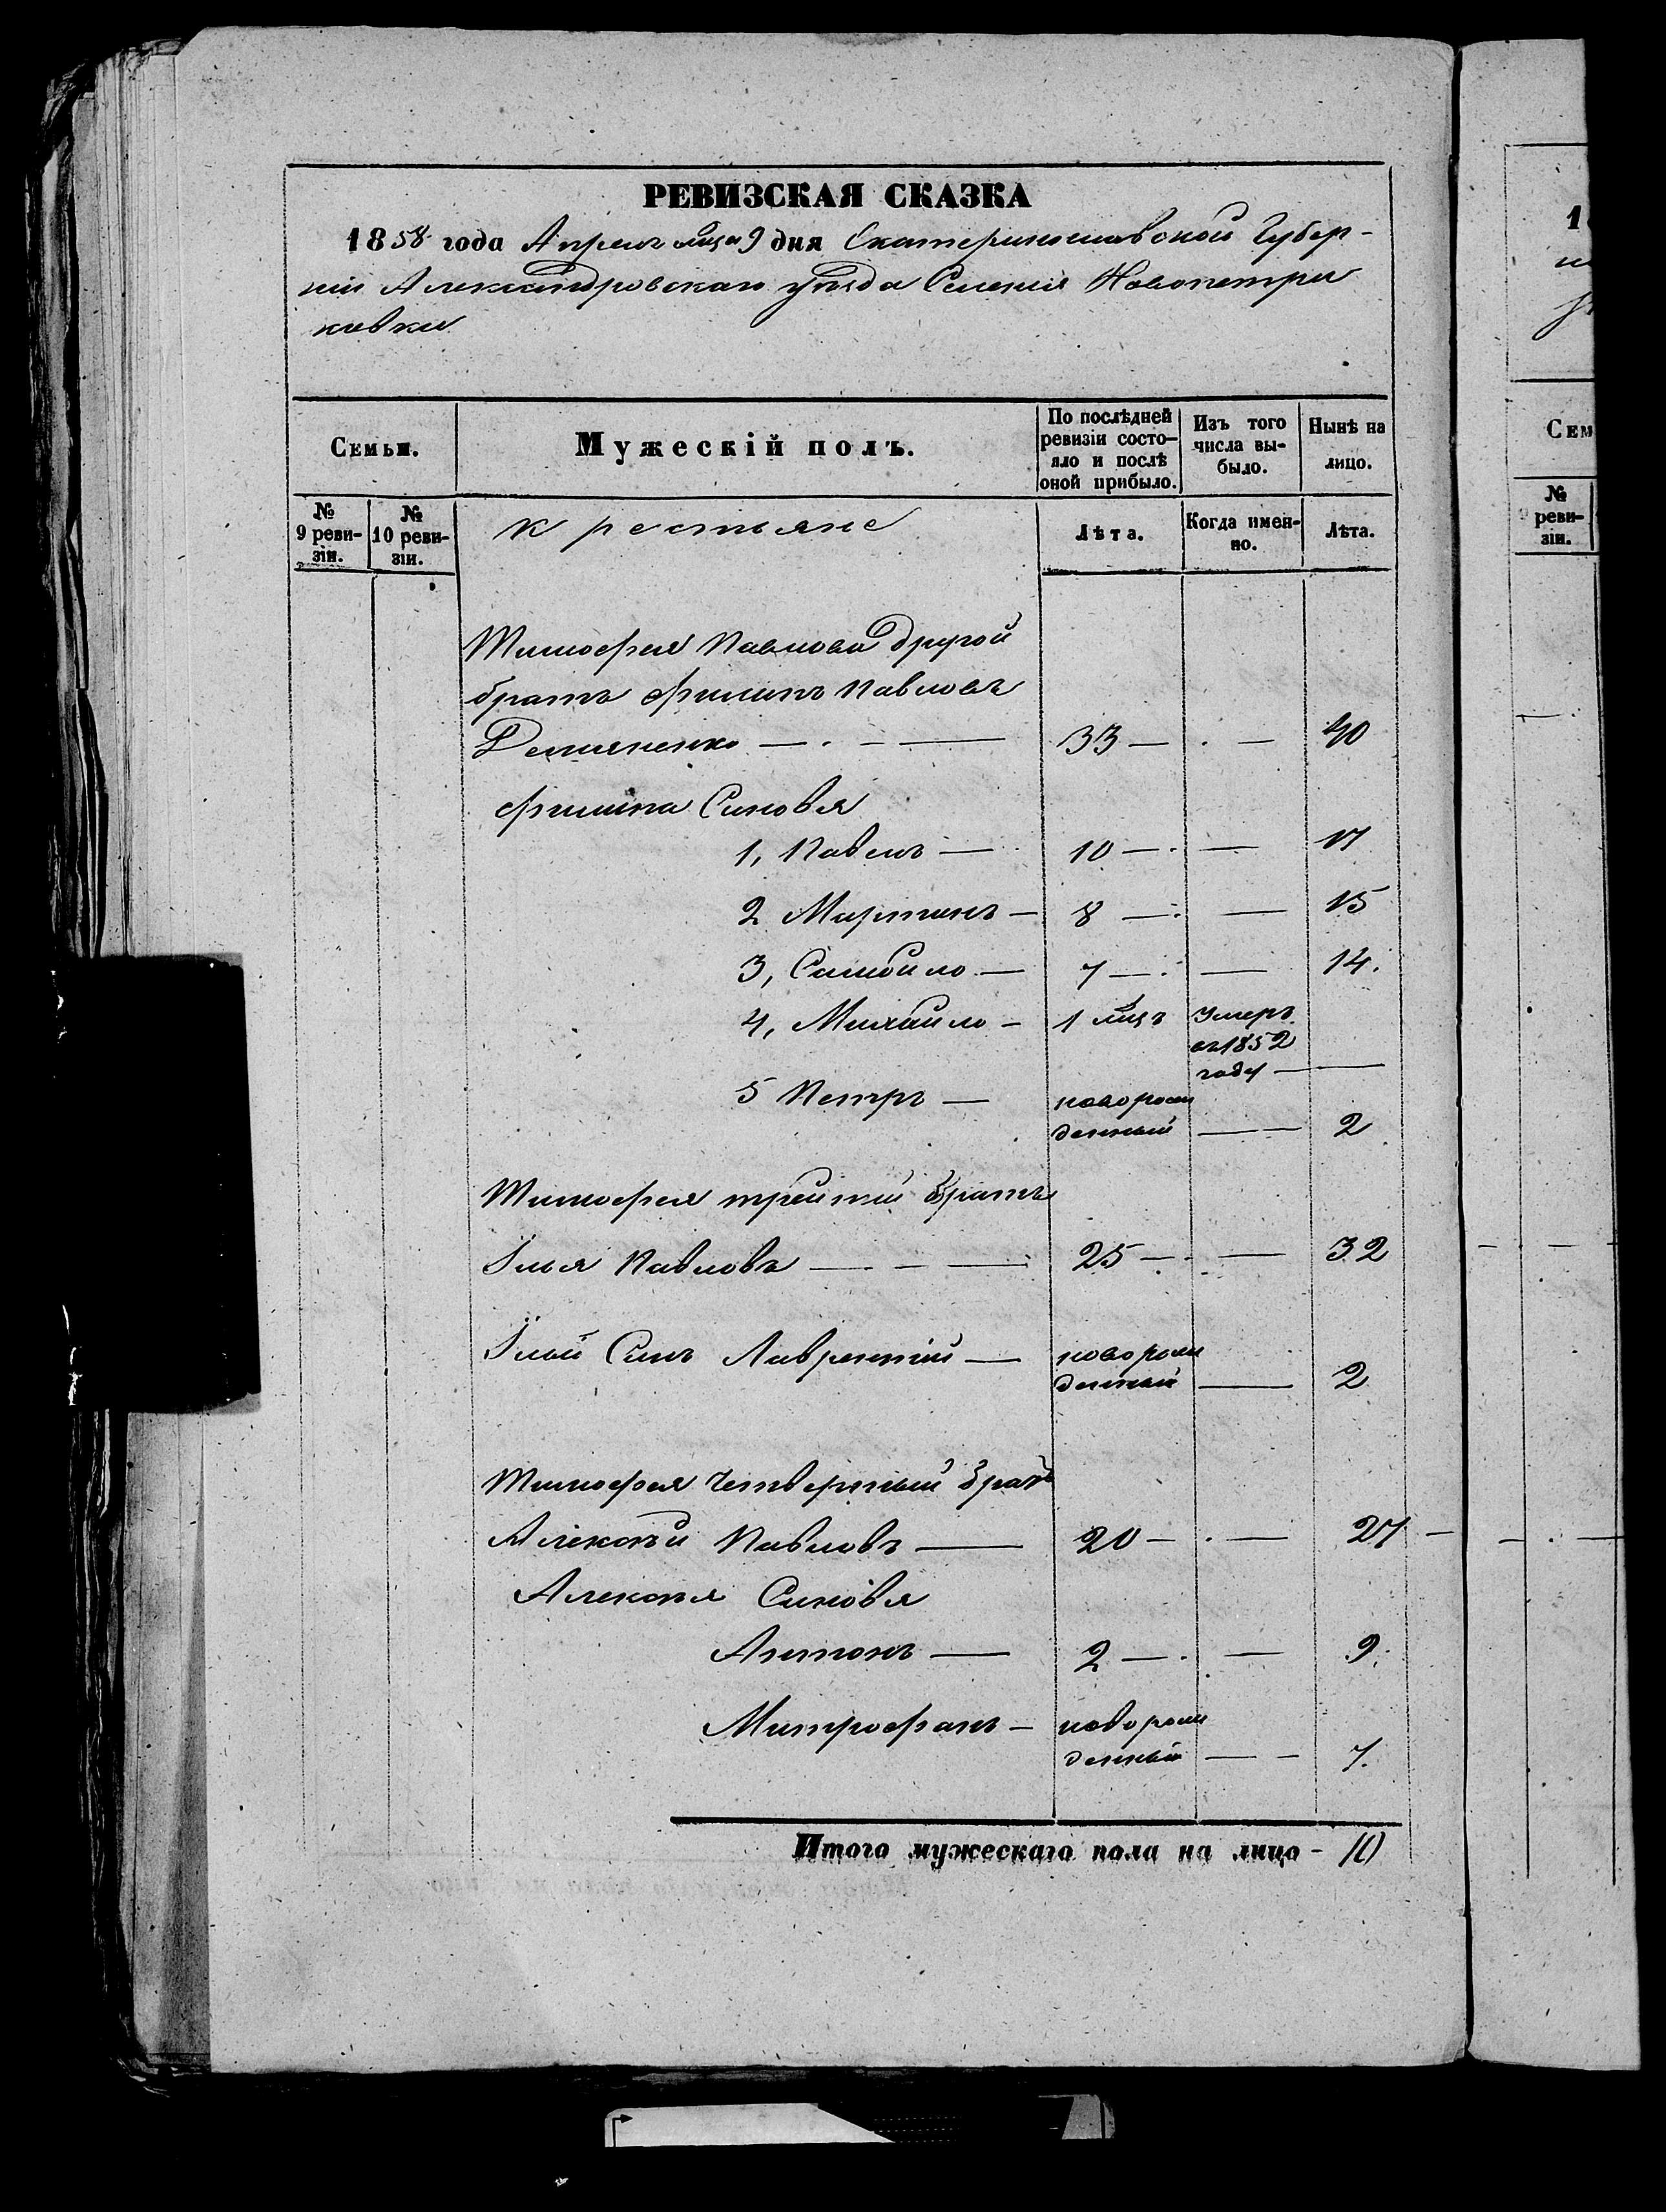 РЕВИЗСКАЯ СКАЗКА
1858 года Апреля мца 9 дня Екатеринославской Губер-
ніи Александровскаго уѣзда Селенія Новопетри
ковки
Семьи.
Мужескій полъ.
По послѣдней ревизіи состо-яло и послѣ оной прибыло.
Изъ того числа вы-было.
Нынѣ на лицо.
№ 9 реви-зіи.
№ 10 реви-зіи.
крестьяне
Лѣта.
Когда имен-но.
Лѣта.
Тимофея Павлова другой
братъ Филипъ Павловъ
Демяненко — 33 — — 40
Филипа Синовья
1, Павелъ — 10 — — 17
2 Мартинъ — 8 — — 15
3, Самойло — 7 — — 14.
4, Михайло — 1 мцъ Умеръ
въ 1852
году —
5 Петръ — новорож
денный — 2
Тимофея трейтій братъ
Ілья Павловъ — 25 — — 32
Ільи Синъ Лаврентій — новорож
денный — 2
Тимофея Четвертый братъ
Алексѣй Павловъ — 20 — — 27 —
Алексѣя Синовья
Антонъ — 2 — — 9.
Митрофанъ — новорож
денный — — 7.
Итого мужескаго пола на лицо - 10
1
Сем
№
реви-
зіи.